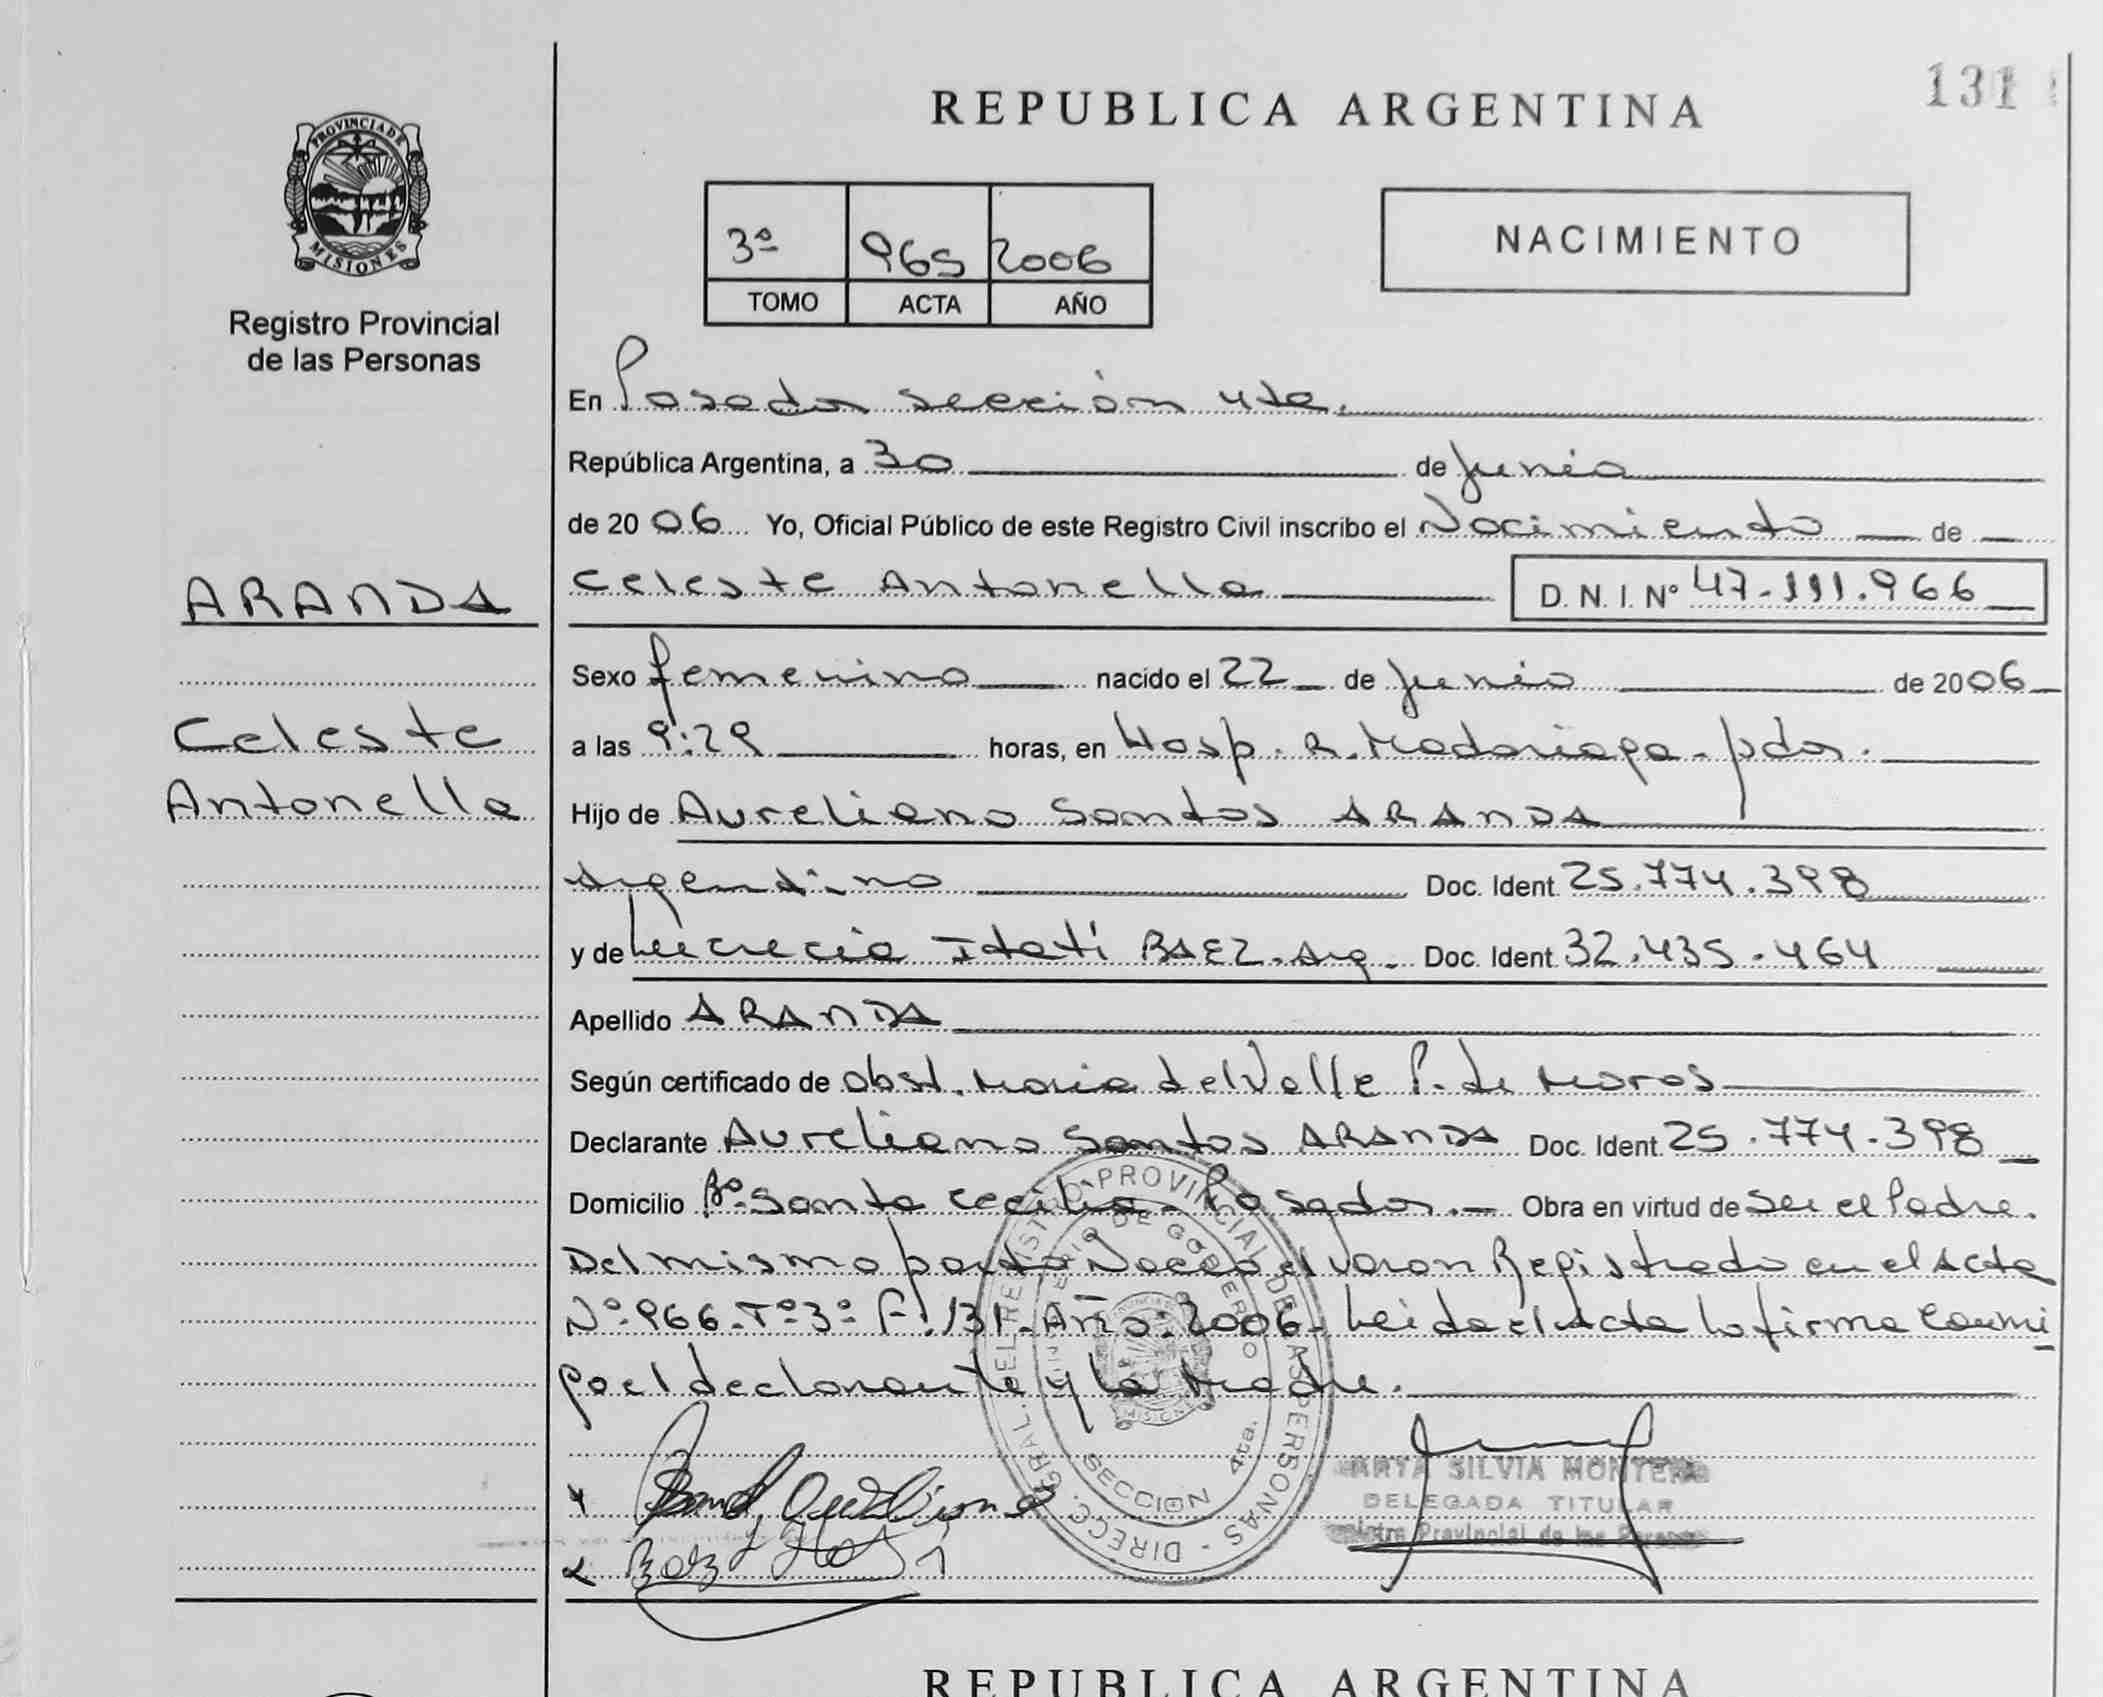 131
REPUBLICA ARGENTINA
PROVINCIA DE
MISIONES
Registro Provincial
de las Personas
3º 965 2006
TOMO ACTA AÑO
NACIMIENTO
En Posadas sección 4ta.
República Argentina, a 30 de Junio
de 2006 Yo, Oficial Público de este Registro Civil inscribo el Nacimiento de
ARANDA
Celeste Antonella D. N. I. Nº 47.111.966
Sexo femenino nacido el 22 de Junio de 2006
Celeste
a las 9:29 horas, en Hosp. R. Madariaga - pdas.
Antonella
Hijo de Aureliano Santos ARANDA
Argentino Doc. Ident. 25.774.398
y de Lucrecia Itatí BAEZ - Arg. Doc. Ident. 32.435.464
Apellido ARANDA
Según certificado de obst. Maria del Valle P. de Moros
Declarante Aureliano Santos ARANDA Doc. Ident. 25.774.398
Domicilio Bº Santa Cecilia - Posadas.- Obra en virtud de ser el Padre.
Del mismo parto Nacio el varon Registrado en el Acta
Nº 966. Tº 3º F. 131. Año: 2006. Leida el Acta la firma conmi
go el declarante y la Madre.
DIRECC. GERAL. DEL REGISTRO PROVINCIAL DE LAS PERSONAS
MINISTERIO DE GOBIERNO
MISIONES
SECCION 4ta.
MARTA SILVIA MONTERO
DELEGADA TITULAR
Registro Provincial de las Personas
Aureliano
Baez Itatí
REPUBLICA ARGENTINA